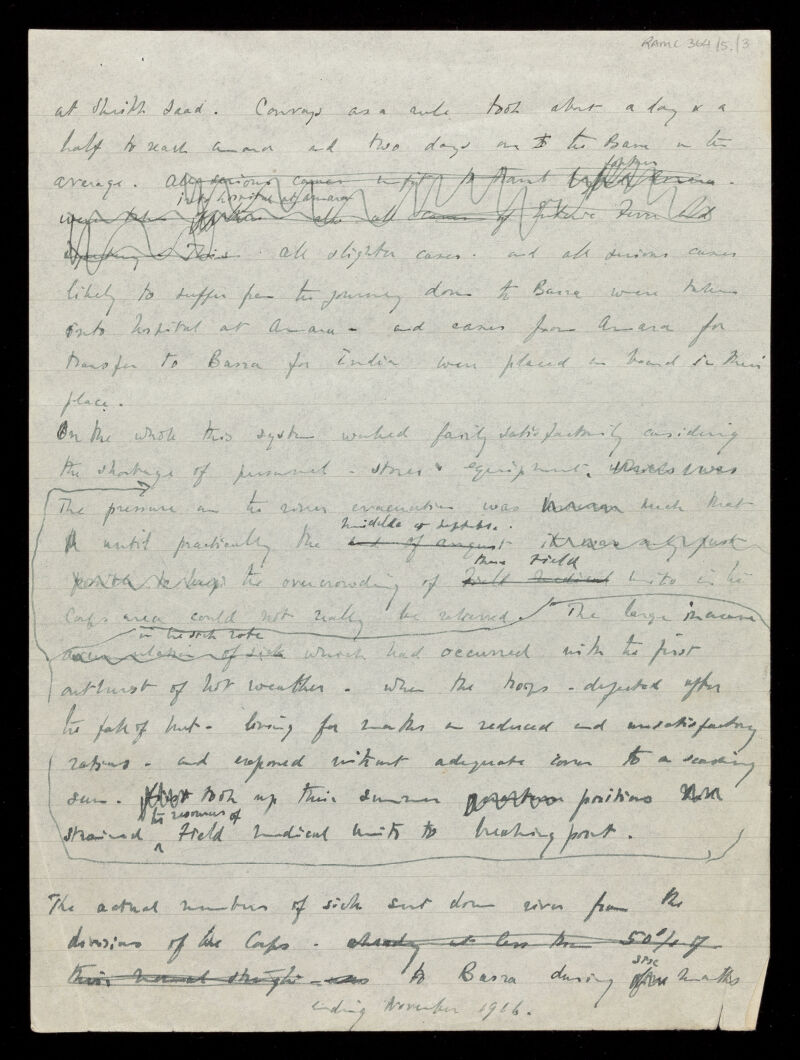 RAMC 364/5/3
at Sheikh Saad. Convoys as a rule took about a day & a
half to reach Amara and two days on to the Basra on the
average. All serious cases unfit to travel
further
into hospital at Amara
were taken all cases of Enteric Fever
all slighter cases. and all serious cases
likely to suffer from the journey down to Basra were taken
into hospital at Amara - and cases from Amara for
transfer to Basra for India were placed on board in their
place.
On the whole this system worked fairly satisfactorily considering
the shortage of personnel - stores & equipment. which was
The pressure on the river evacuation was such that
middle of September.
until practically the end of August it was only just
these Field
possible to keep the overcrowding of Field medical units in the
Corps area could not really be relieved. The large increase
in the sick rate
accumulation of sick which had occurred with the first
outburst of hot weather - when the troops - dejected after
the fall of Kut - living for months on reduced and unsatisfactory
rations - and exposed without adequate cover to a scorching
sun - first took up their summer positions
the resources of
strained Field medical units to breaking point.
The actual numbers of sick sent down river from the
divisions of the Corps - already at less than 50% of
their normal strength - was to Basra during months
ending November 1916.